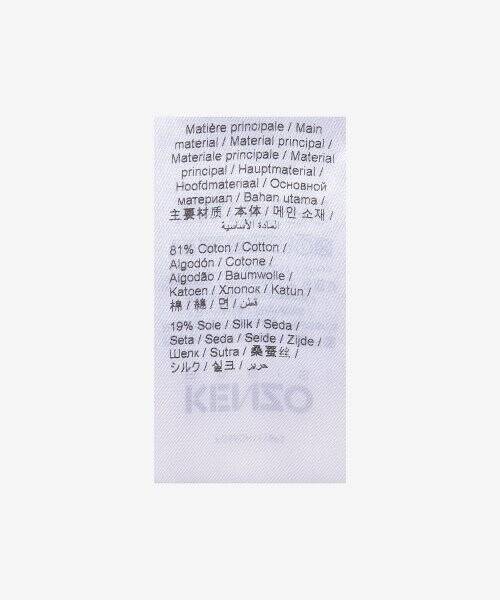 Matière principale / Main
material / Material principal /
Materiale principale / Material
principal / Hauptmaterial /
Hoofdmateriaal / Основной
материал / Bahan utama /
主要材质 / 本体 / 메인 소재 /
المادة الأساسية
81% Coton / Cotton /
Algodón / Cotone /
Algodão / Baumwolle /
Katoen / Хлопок / Katun /
棉 / 綿 / 면 / قطن
19% Soie / Silk / Seda /
Seta / Seda / Seide / Zijde /
Шелк / Sutra / 桑蚕丝 /
シルク / 실크 / حرير
KENZO